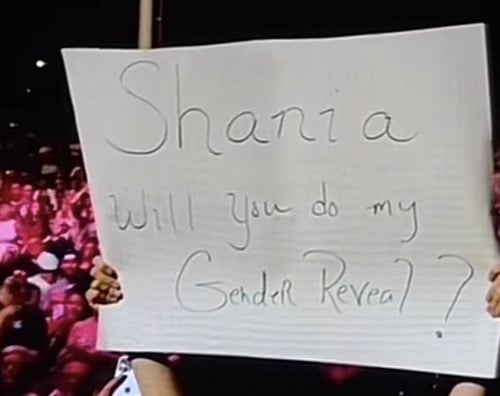 Shania
Will you do my
Gender Reveal?